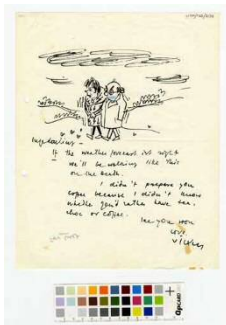 If the weather forecast isn't right
we'll be walking like this
on the Heath.
I didn't prepare you
coffee because I didn't know
whether you'd rather have tea,
choc or coffee.
See you soon
love
Vicky